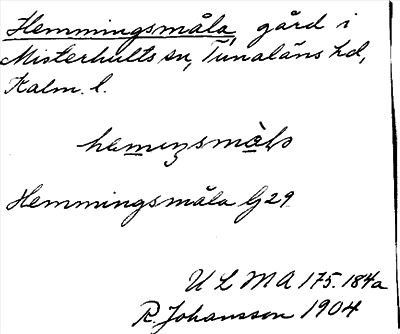 Hemmingsmåla, gård i
Misterhults sn, Tunaläns hd,
Kalm. l.
Hemmingsmåla G 29
U L M A 175. 184a
R. Johansson 1904